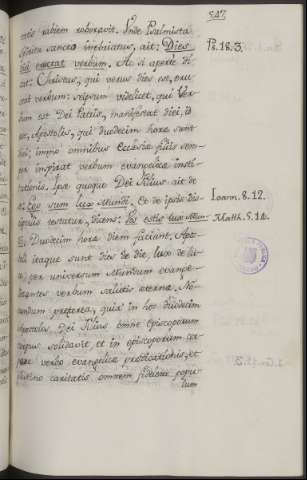 547
fabiem roboravit. Unde Psalmista
Spiritu sancto imbuiatur, ait: Dies
diei eructat verbum. Ac si aperte di-
cat: Christus, qui verus dies est, eruc-
tat verbum: seipsum videlicet, qui Ver-
bum est Dei Patris, manifestat diei, id
est, Apostolis, qui duodecim horæ sunt
diei; immo omnibus Ecclesiæ filiis sem-
per inspirat verbum evangelicæ insti-
tutionis. Ipse quoque Dei Filius ait de
se: Ego sum lux Mundi. Et de ipsis dis-
cipulis testatur, dicens: Vos estis lux Mun-
di. Duodecim horæ diem faciunt. Apos-
toli itaque sunt dies de die, lux de lu-
ce, per universum Mundum evange-
lizantes verbum salutis æternæ. No-
tandum præterea, quia in hoc duodecim
Apostolos Dei Filius omne Episcoporum
corpus solidavit et in episcoporum cor-
pore verbo evangelicæ prædicationis, et
caritatis omnem fidelem popu-
lum
Ps. 18. 3.
Joann. 8. 12.
Matth. 5. 14.